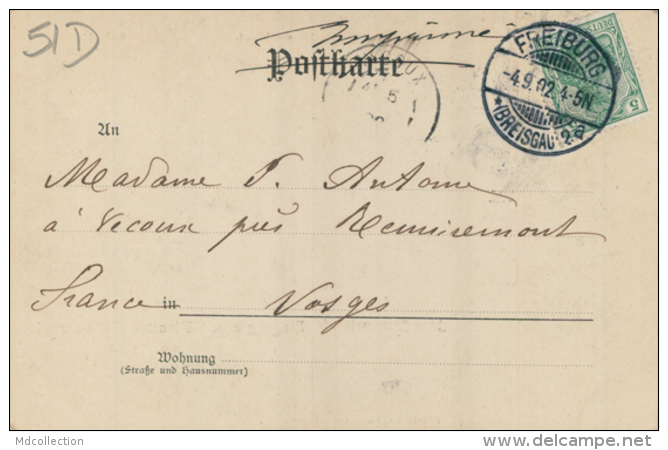 51D
Imprimé
Postkarte
FREIBURG
-4.9.02.4-5N
*(BREISGAU) 2.a
5
An
Madame F. Antoine
à Vecoux près Remiremont
France in Vosges
Wohnung
(Straße und Hausnummer)
Mdcollection
www.delcampe.net